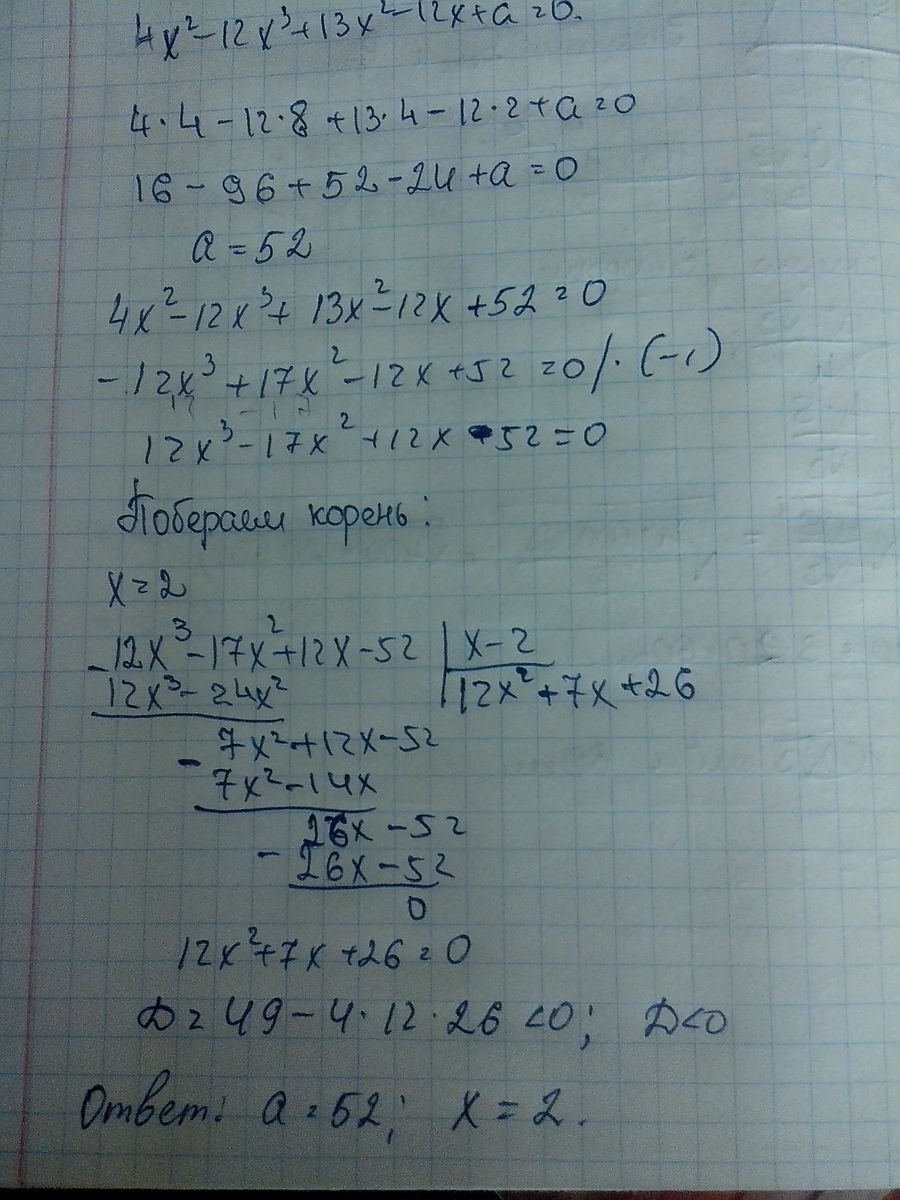 4x²-12x³+13x²-12x+a=0.
4·4-12·8+13·4-12·2+a=0
16-96+52-24+a=0
a=52
4x²-12x³+13x²-12x+52=0
-12x³+17x²-12x+52=0/·(-1)
12x³-17x²+12x-52=0
Побераем корень:
x=2
12x³-17x²+12x-52 | x-2
-
12x³-24x² | 12x²+7x+26
7x²+12x-52
-
7x²-14x
26x-52
-
26x-52
0
12x²+7x+26=0
D=49-4·12·26<0; D<0
Ответ: a=52; x=2.